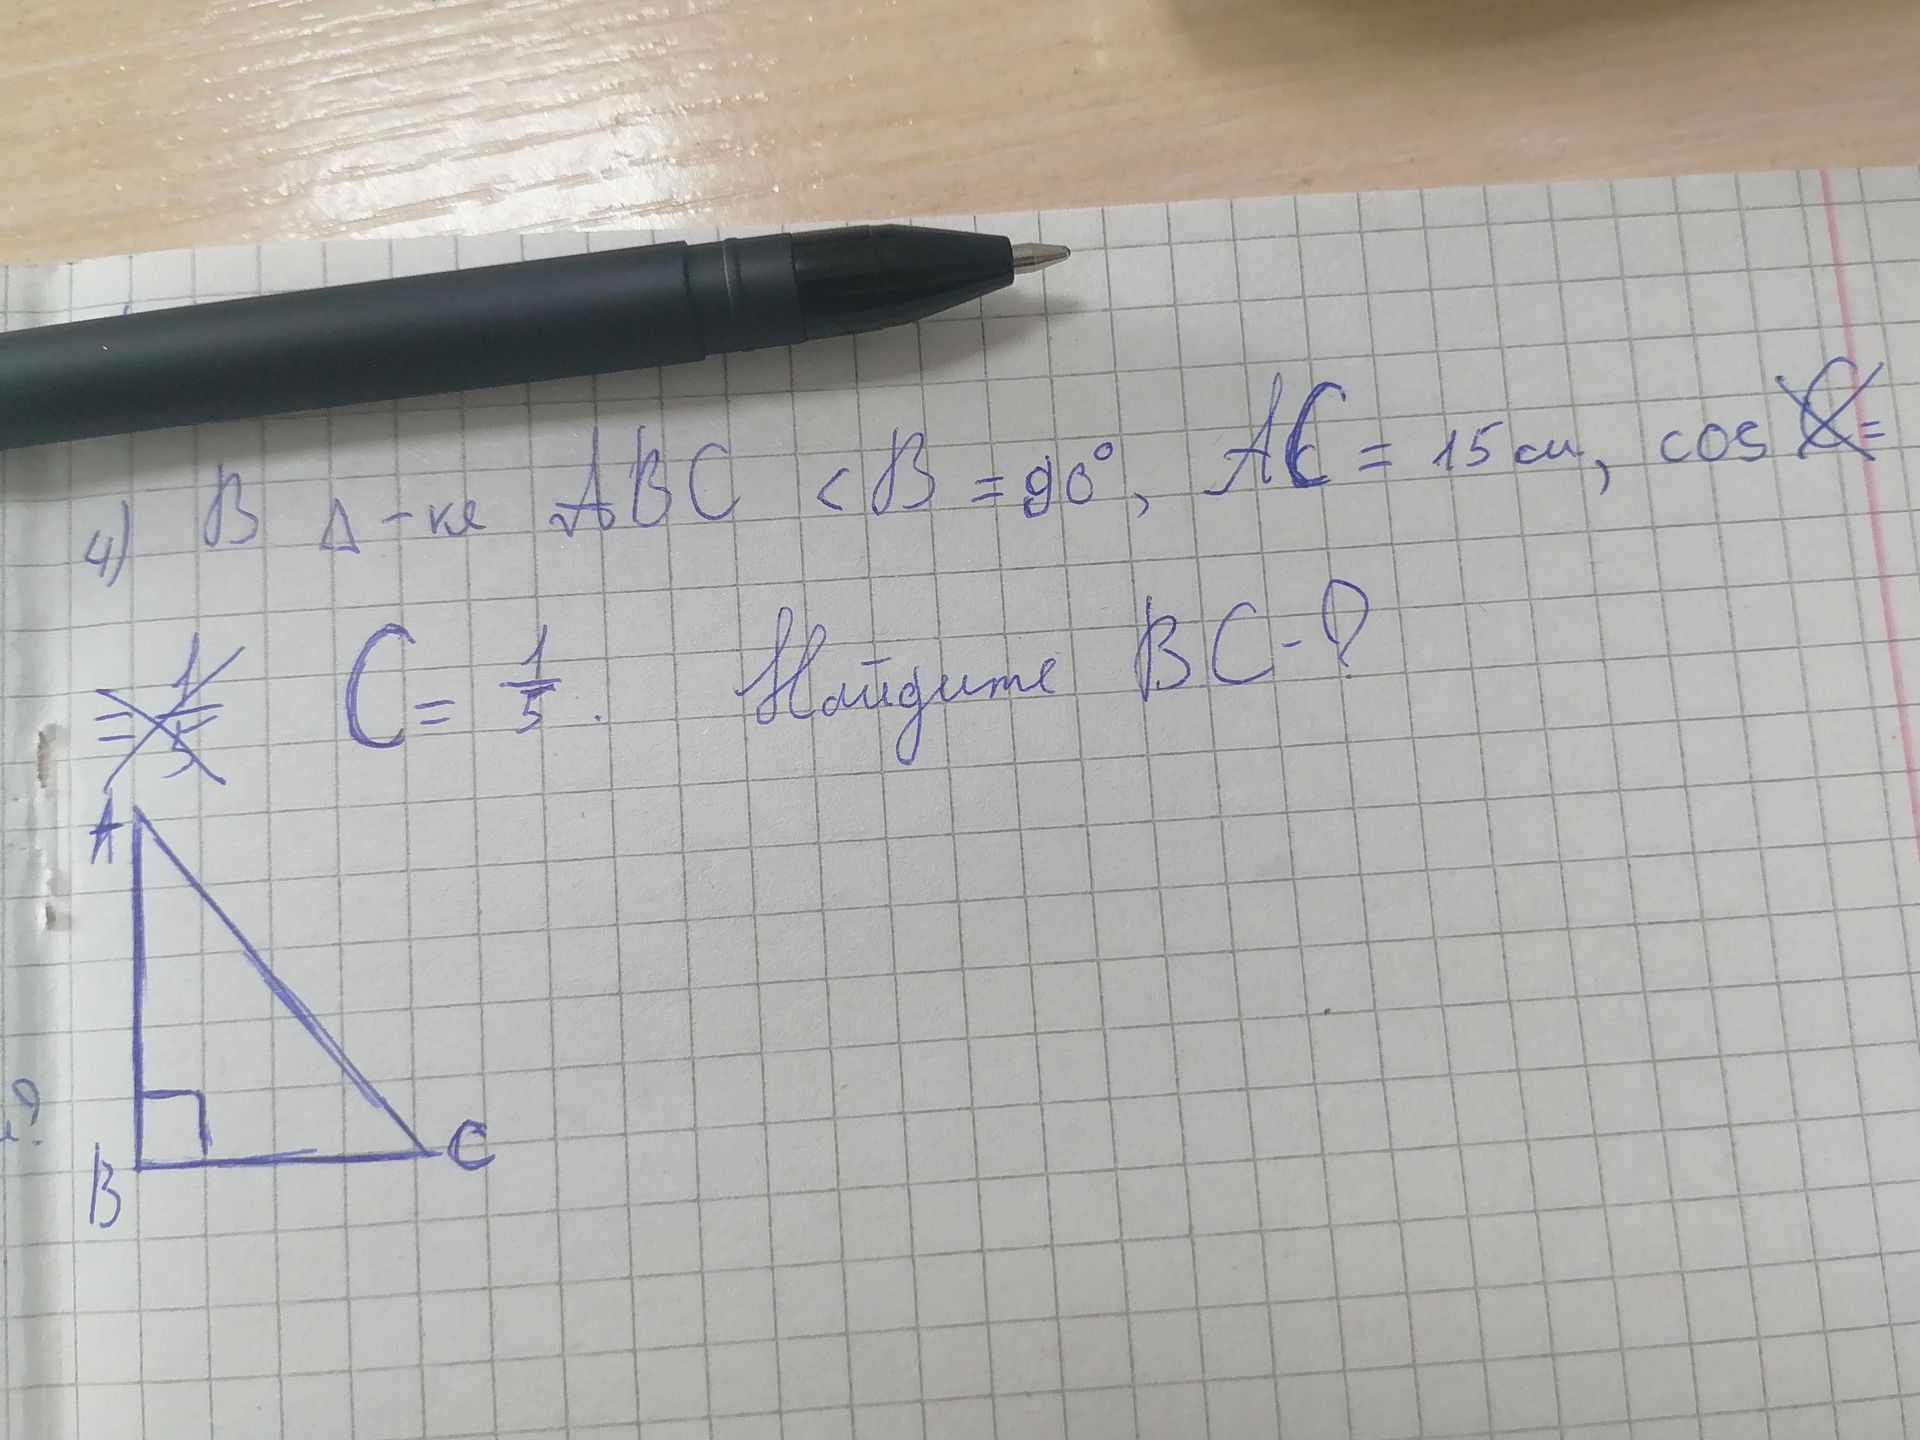 4) В Δ-ке ABC <B = 90°, AC = 15 см, cos C =
= 1/5 C = 1/5. Найдите BC - ?
A
B
C
?